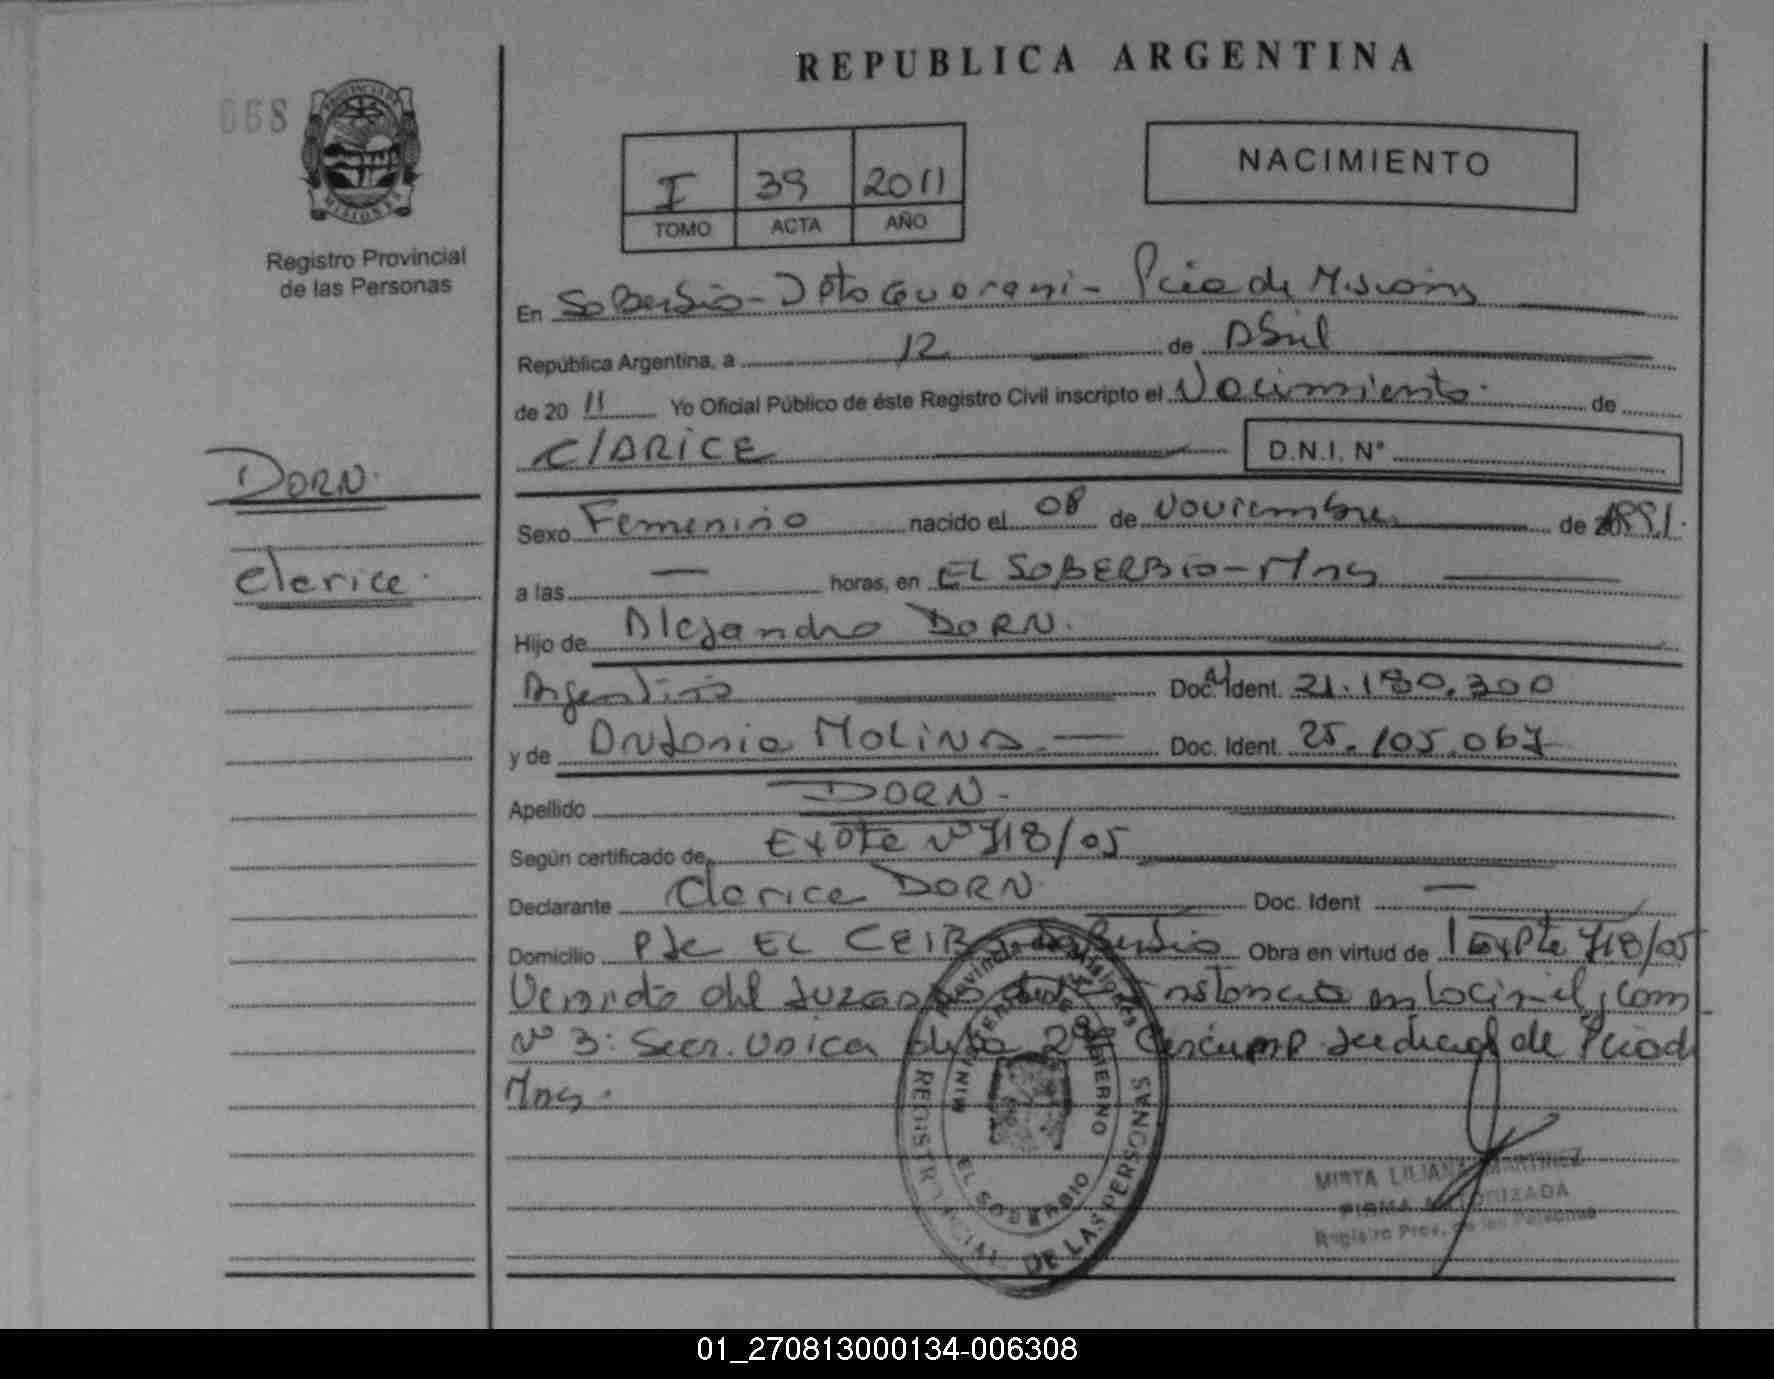 REPUBLICA ARGENTINA
668
PROVINCIA DE
MISIONES
Registro Provincial
de las Personas
I 39 2011
TOMO ACTA AÑO
NACIMIENTO
En Soberbio - Dpto Guarani - Pcia de Misiones
República Argentina, a 12 de Abril
de 20 11 Yo Oficial Público de éste Registro Civil inscripto el Nacimiento de
CLARICE D.N.I. Nº
DORN.
Sexo Femenino nacido el 08 de Noviembre de 1991.
Clarice.
a las — horas, en EL SOBERBIO - Mnes
Hijo de Alejandro DORN.
Argentino Doc. Ident. 21.180.300
y de Antonia MOLINA. — Doc. Ident. 25.105.067
Apellido DORN -
Según certificado de Expte Nº 718/05
Declarante Clarice DORN. Doc. Ident —
Domicilio Pje EL CEIBO Soberbio Obra en virtud de Expte 718/05
Venido del Juzgado de Instancia en lo Civil, Com
Nº 3: Secr. Unica de la 2º Circunsp Judicial de Pcia d
Mnes.
Provincia de Misiones
MINISTERIO DE GOBIERNO
EL SOBERBIO
REGISTRO PROVINCIAL DE LAS PERSONAS
MIRTA LILIANA MARTINEZ
FIRMA AUTORIZADA
Registro Prov. de las Personas
01_270813000134-006308